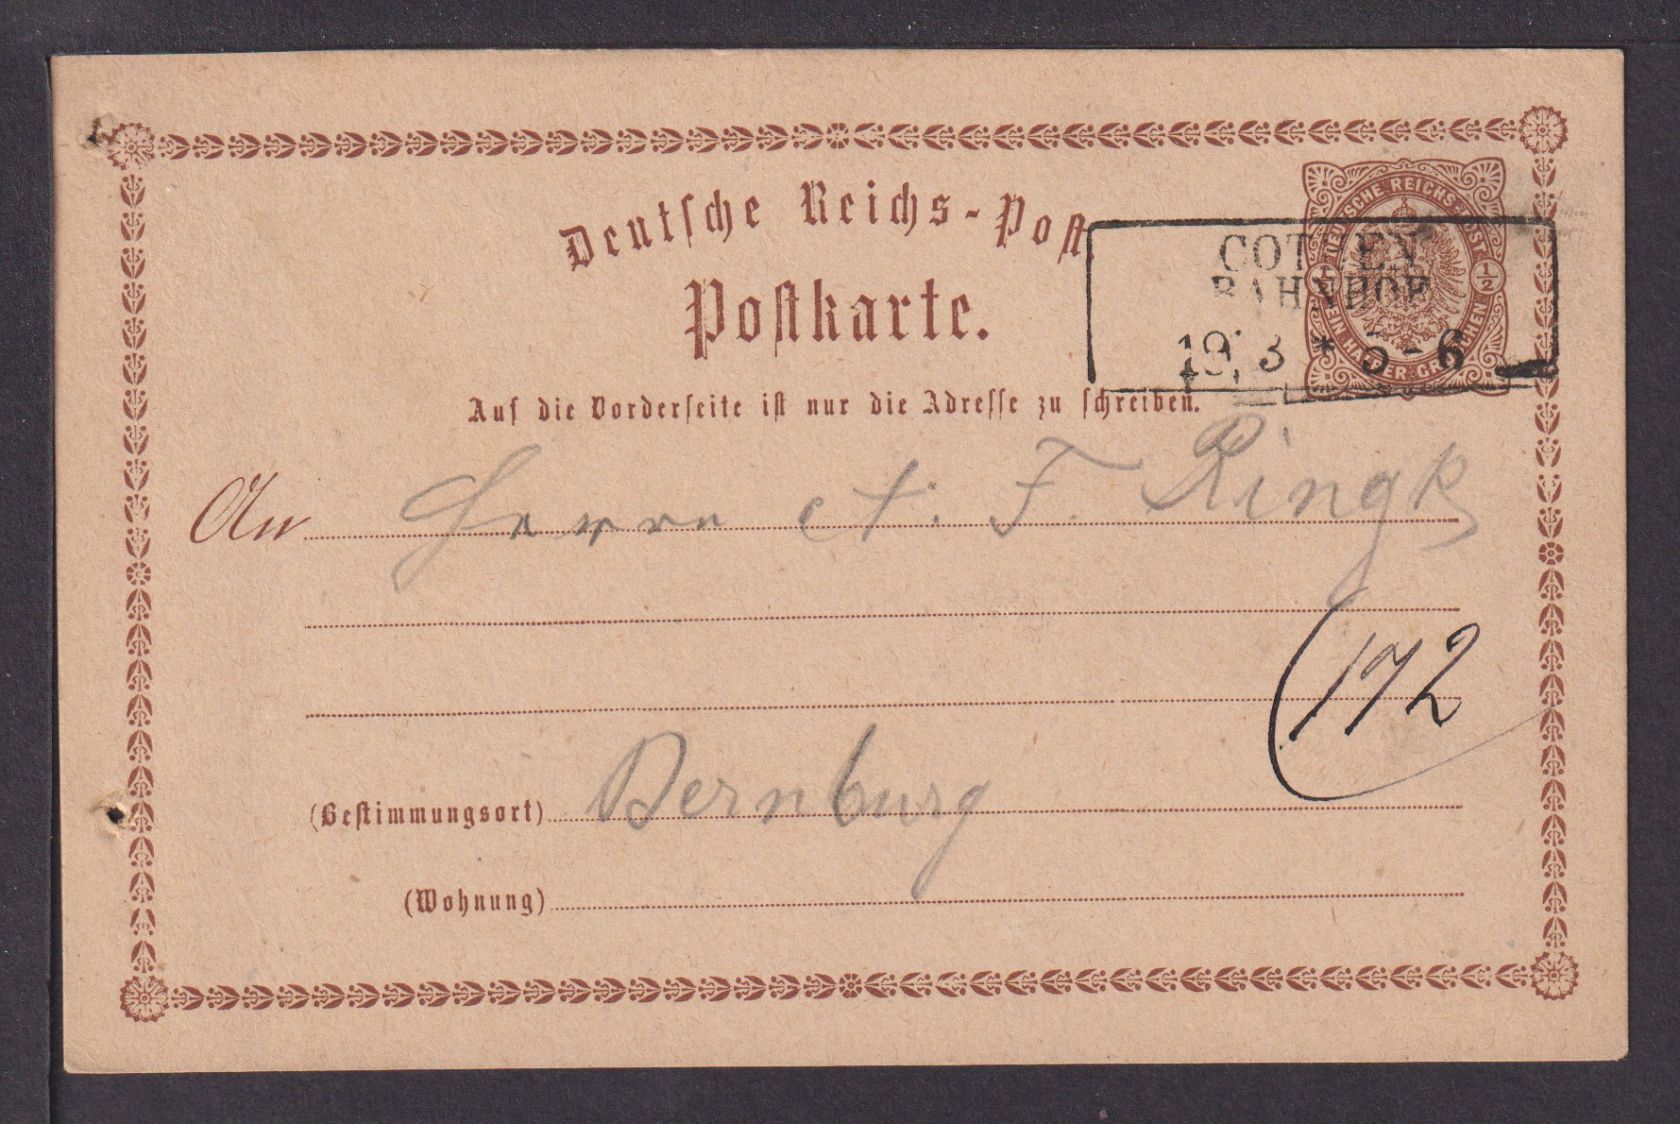 Deutsche Reichs-Post.
Postkarte.
DEUTSCHE REICHS-POST
EIN HALBER GROSCHEN
1/2
COTHEN
BAHNHOF
19 3 * 5-6
Auf die Vorderseite ist nur die Adresse zu schreiben.
An Herrn F. Ringk
172
(Bestimmungsort) Bernburg
(Wohnung)